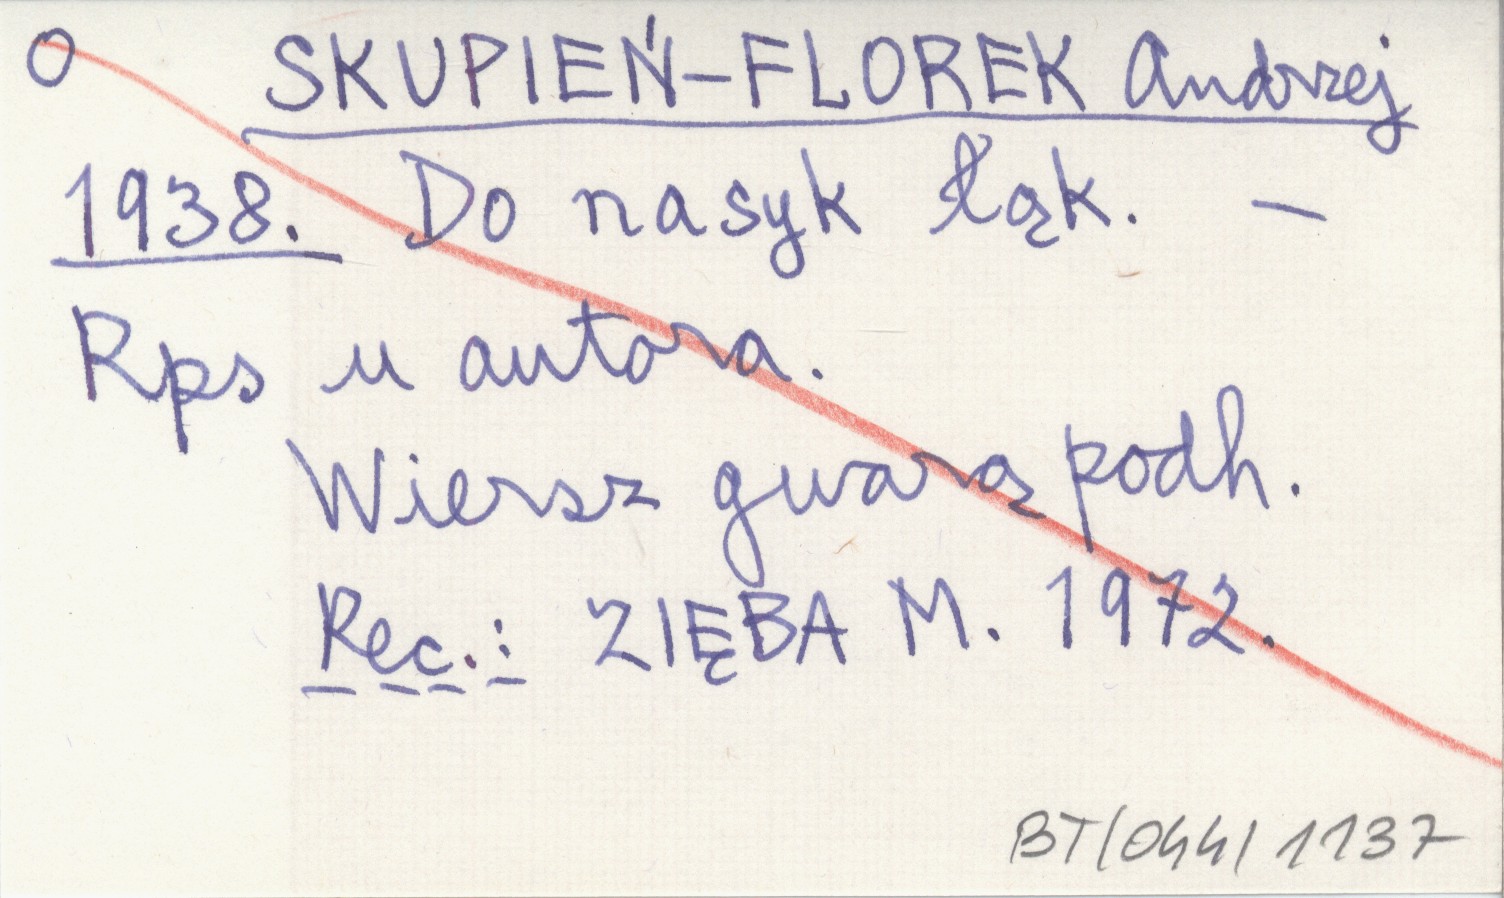 O SKUPIEŃ-FLOREK Andrzej
1938. Do nasyk łąk. —
Rps u autora.
Wiersz gwarą podh.
Rec.: ZIĘBA M. 1972.
BT/044/1137